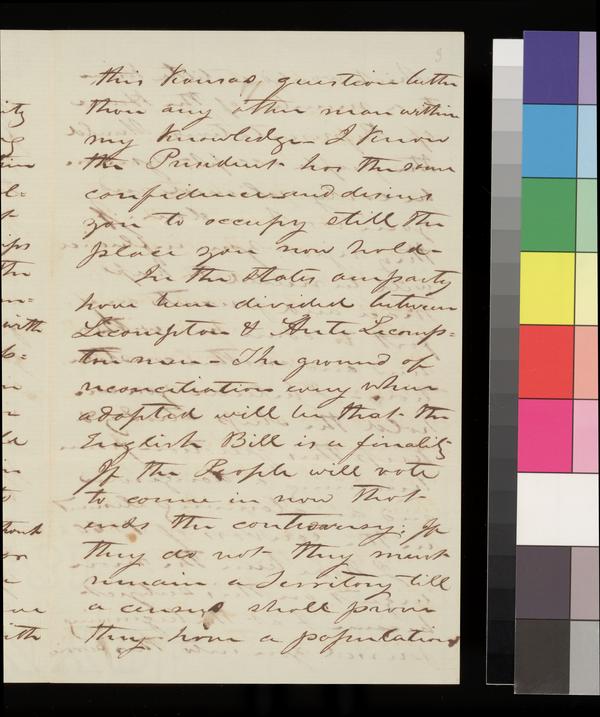 3
this Kansas question better
than any other man within
my Knowledge - I Know
the President has the same
confidence and desires
you to occupy still the
place you now hold -
In the States our party
have been divided between
Lecompton & Anti Lecomp=
ton men - The ground of
reconciliation every where
adopted will be that the
English Bill is a finality
If the People will vote
to come in now that
ends the controversy; If
they do not they must
remain a Territory till
a census shall prove
they have a population